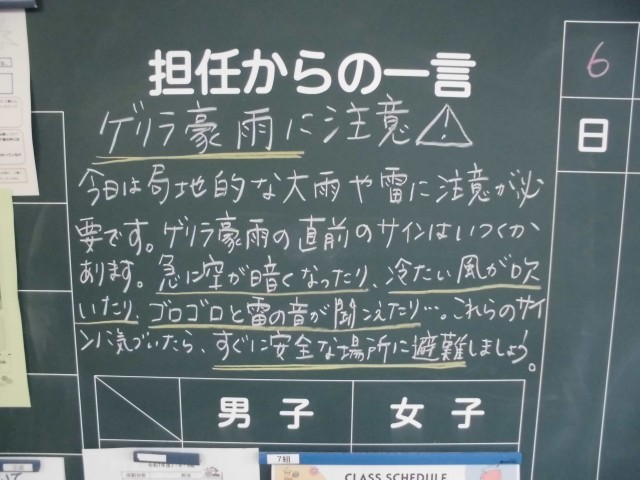 担任からの一言
ゲリラ豪雨に注意⚠
今日は局地的な大雨や雷に注意が必
要です。ゲリラ豪雨の直前のサインはいつくか
あります。急に空が暗くなったり、冷たい風が吹
いたり、ゴロゴロと雷の音が聞こえたり…。これらのサイ
ンに気づいたら、すぐに安全な場所に避難しましょう。
6
日
男子 女子
7組
CLASS SCHEDULE